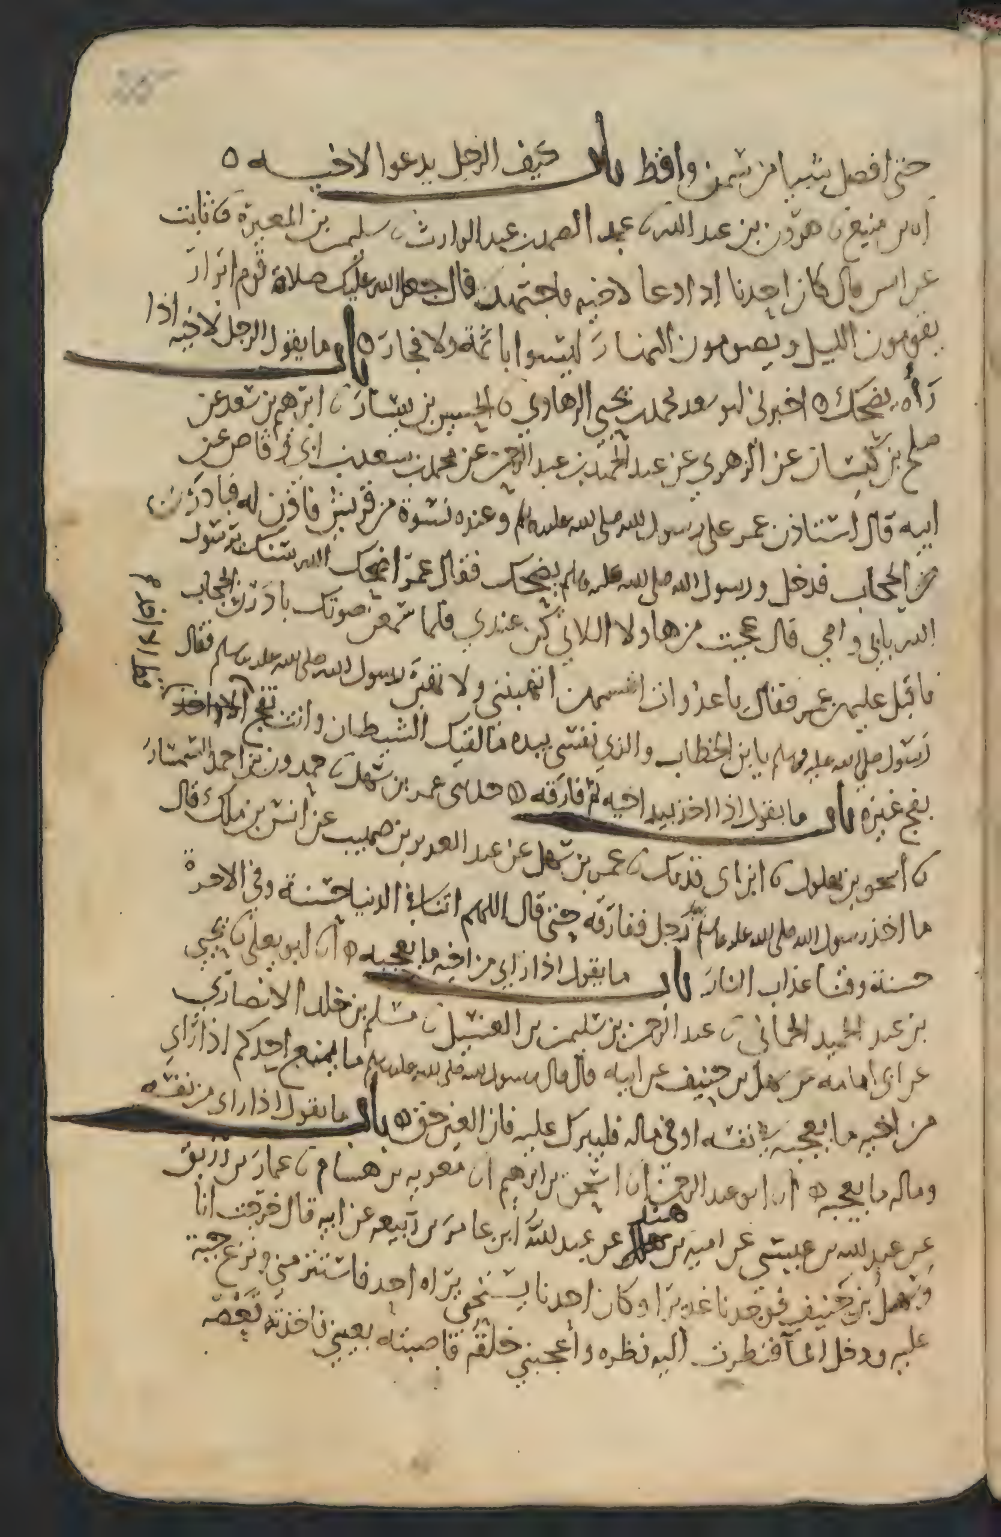 حتى افضل شيا من سمن واقط باب كيف الرجل يدعوا لاخيه ه
ابن منيع ن هرون بن عبد الله ن عبد الصمد بن عبد الوارث ن سليمن بن المغيرة ن ثابت
عن انس قال كان احدنا اذا دعا لاخيه فاجتهد قال جعل الله عليك صلاة قوم ابرار
يقومون الليل ويصومون النهار ليسوا باثمة ولا فجار ه باب ما يقول الرجل لاخيه اذا
رآه يضحك ه اخبرني ابو سعد محمد بن يحيى الرهاوي ن الحسين بن بشار ن ابرهيم بن سعد عن
صلح بن كيسان عن الزهري عن عبد الحميد بن عبد الرحمن عن محمد بن سعد بن ابي وقاص عن
ابيه قال استاذن عمر على رسول الله صلى الله عليه وسلم وعنده نسوة من قريش فاذن له فبادرن
الحجاب فدخل ورسول الله صلى الله عليه وسلم يضحك فقال عمر اضحك الله سنك يرسول
الله بابي وامي قال عجبت من هاولا اللاتي كن عندي فلما سمعن صوتك بادرن الحجاب
فاقبل عليهن عمر فقال يا عدوات انفسهن اتهبنني ولا تهبن رسول الله صلى الله عليه وسلم فقال
رسول صلى الله عليه وسلم يا بن الخطاب والذي نفسي بيده ما لقيك الشيطان وانت بفج الا اخذ
بفج غيره باب ما يقول اذا اخذ بيد اخيه ثم فارقه ه حدثني عمر بن سهل ن حمدون بن احمد السمسار
ن اسحق بن بهلول ن ابن ابي فديك ن عمر بن سهل عن عبد العزيز بن صهيب عن انس بن ملك قال
ما اخذ رسول الله صلى الله عليه وسلم بيد رجل ففارقه حتى قال اللهم اتنا في الدنيا حسنة وفي الاخرة
حسنة وقنا عذاب النار باب ما يقول اذا راى من اخيه ما يعجبه ه ابو يعلى ن يحيى
بن عبد الحميد الحماني ن عبد الرحمن بن سليمن بن الغسيل ن مسلم بن خلد الانصاري
عن ابي امامه بن سهل بن حنيف عن ابيه قال قال رسول الله صلى الله عليه وسلم ما يمنع احدكم اذا راى
من اخيه ما يعجبه في نفسه او في ماله فليبرك عليه فان العين حق ه باب ما يقول اذا راى من نفسه
وماله ما يعجبه ه ابو عبد الرحمن انا اسحق بن ابرهيم ان معويه بن هشام ن عمار بن رزيق
عن عبد الله بن عيسى عن امية بن هند عن عبد الله ابن عامر بن ربيعه عن ابيه قال خرجت انا
وسهل بن حنيف فوجدنا غديرا وكان احدنا يستحي يراه احد فاستتر مني ونزع جبة
عليه ودخل الما فنظرت اليه نظره واعجبني خلقه فاصبته بعيني فاخذته